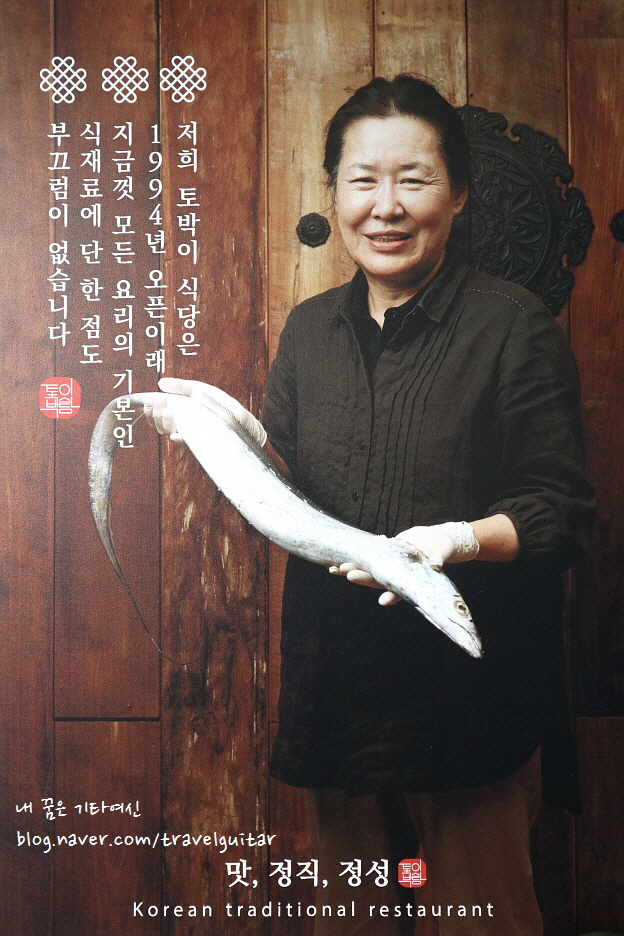 저희 토박이 식당은
1994년 오픈이래
지금껏 모든 요리의 기본인
식재료에 단 한 점도
부끄럼이 없습니다
토박이
내 꿈은 기타여신
blog.naver.com/travelguitar
맛, 정직, 정성
Korean traditional restaurant